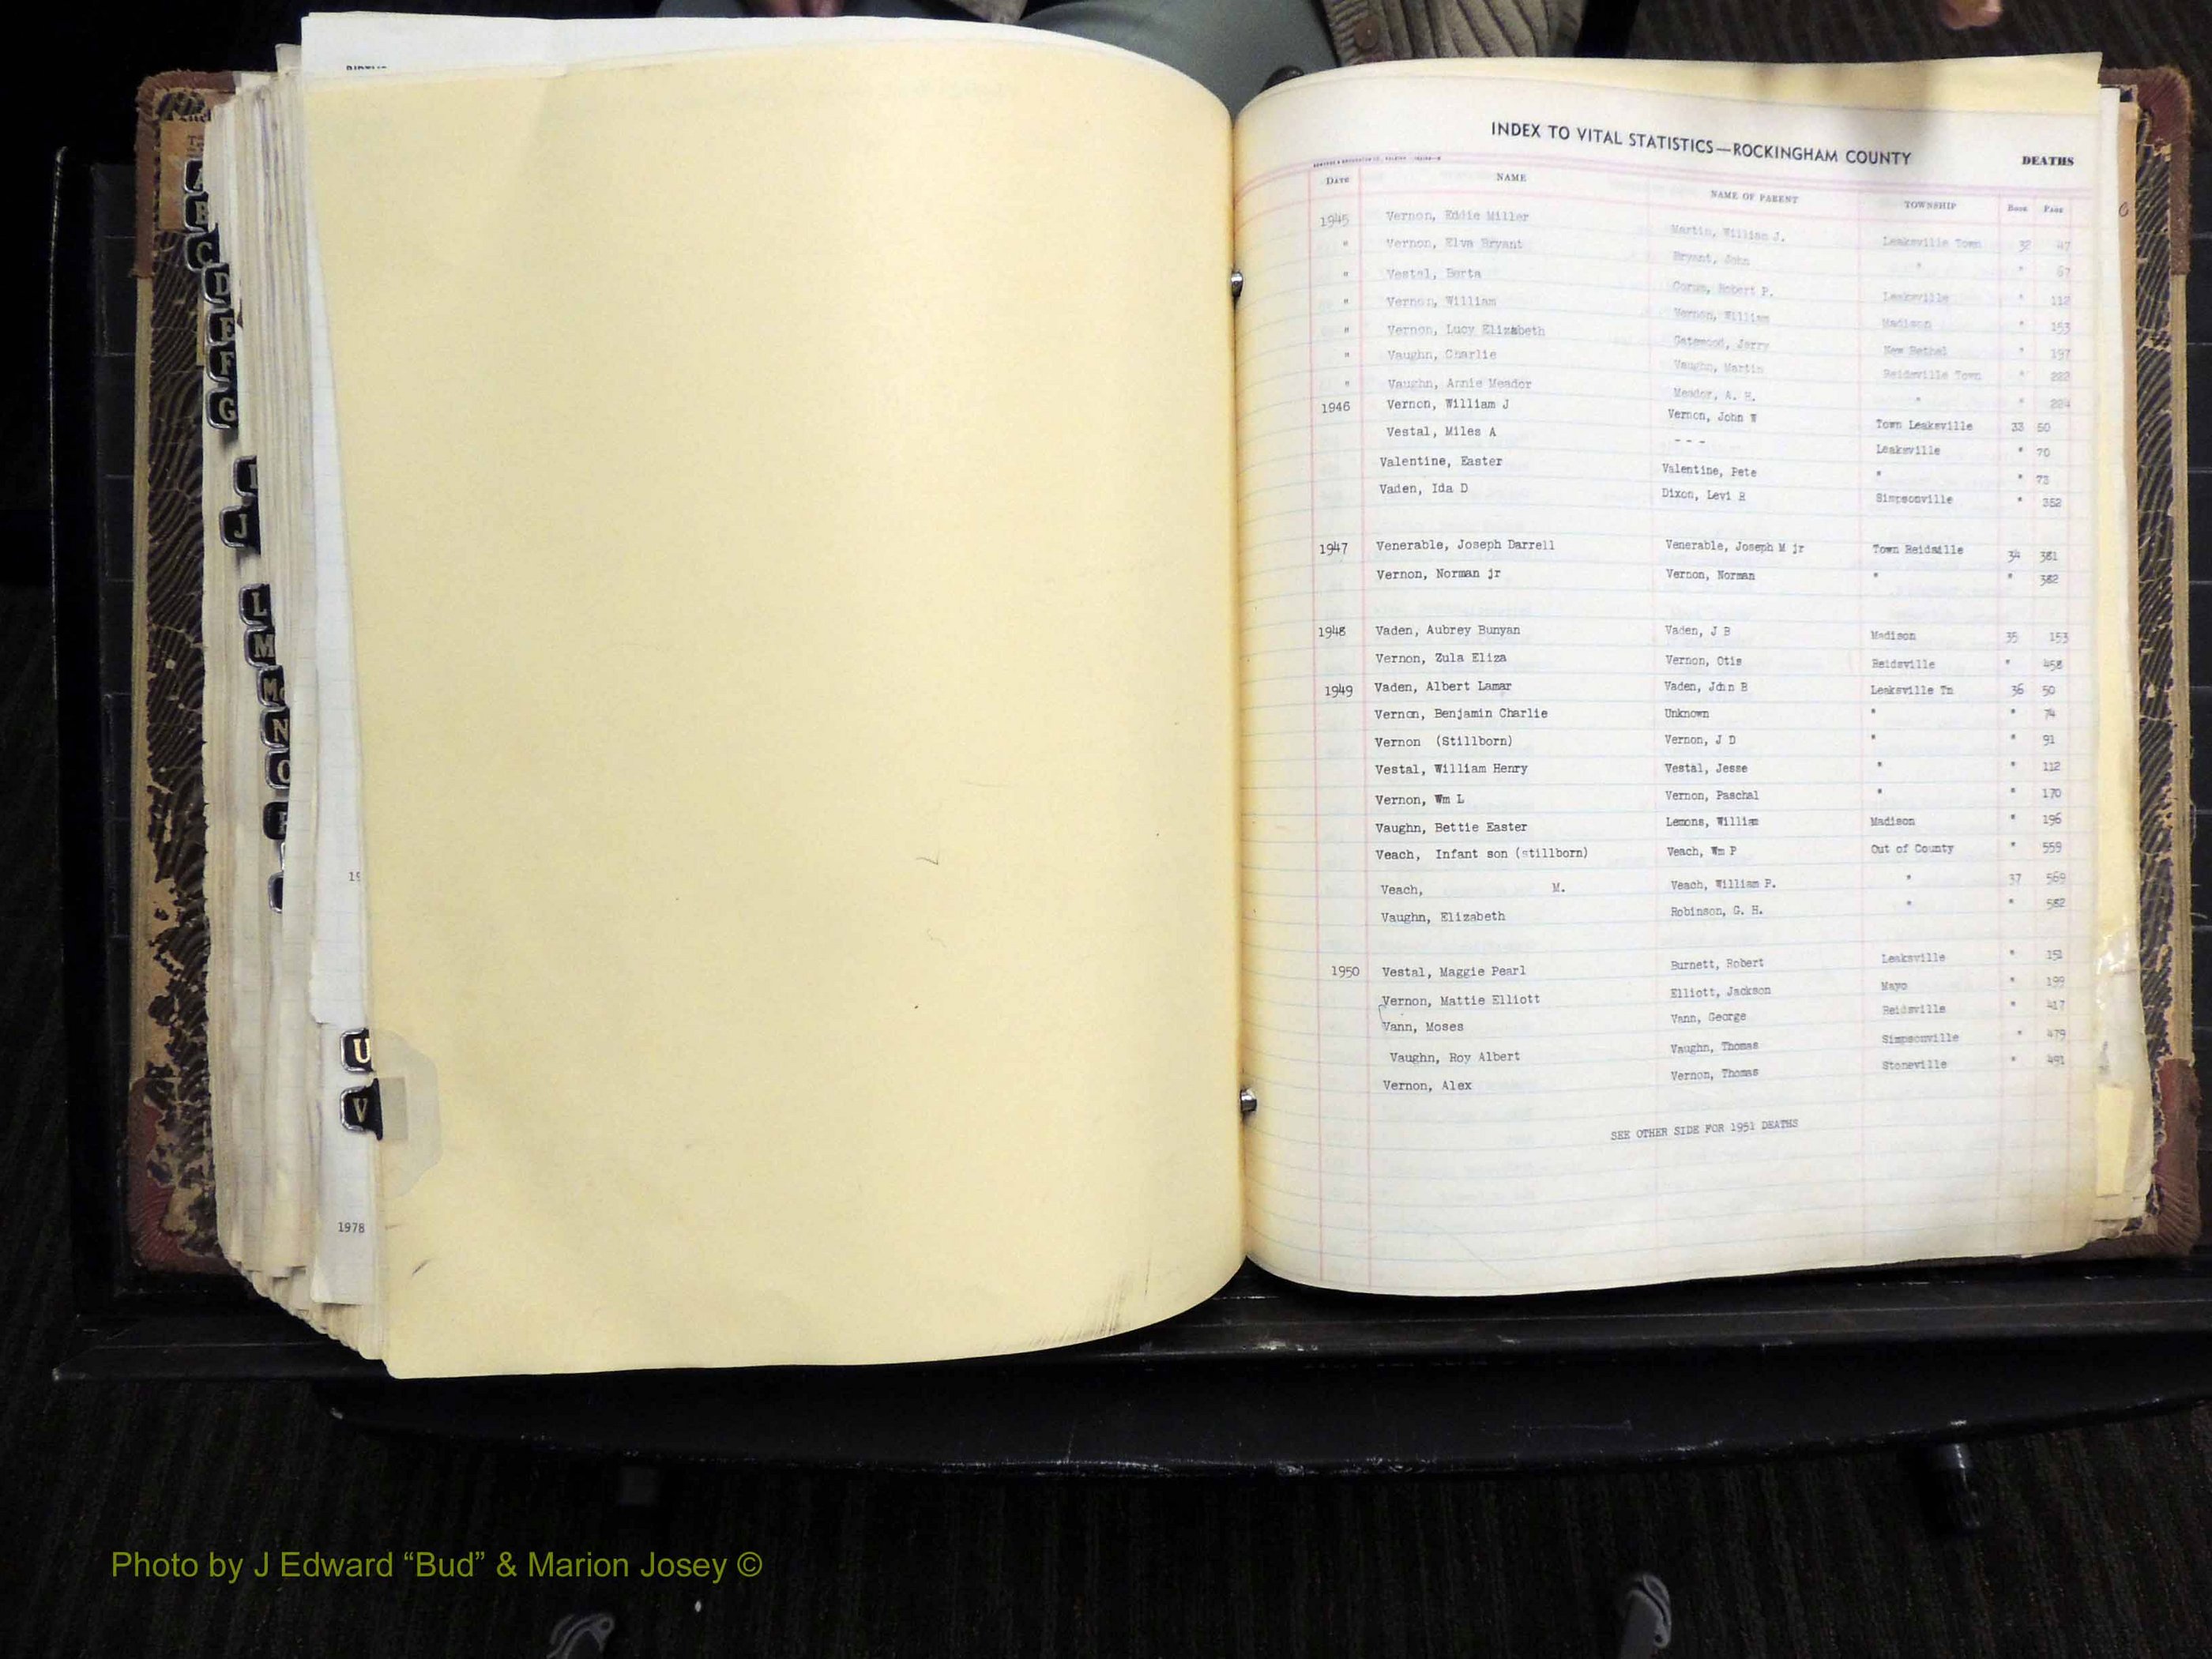 A
B
C
D
E
F
G
I
J
L
M
Mc
N
O
P
19
U
V
1978
INDEX TO VITAL STATISTICS—ROCKINGHAM COUNTY
DEATHS
DATE NAME NAME OF PARENT TOWNSHIP BOOK PAGE
1945 Vernon, Eddie Miller Martin, William J. Leaksville Town 32 47
" Vernon, Elva Bryant Bryant, John " " 67
" Vestal, Berta Corum, Robert P. Leaksville " 112
" Vernon, William Vernon, William Madison " 153
" Vernon, Lucy Elizabeth Gatewood, Jerry New Bethel " 197
" Vaughn, Charlie Vaughn, Martin Reidsville Town " 222
" Vaughn, Annie Meador Meador, A. H. " " 224
1946 Vernon, William J Vernon, John W Town Leaksville 33 50
Vestal, Miles A - - - Leaksville " 70
Valentine, Easter Valentine, Pete " " 73
Vaden, Ida D Dixon, Levi R Simpsonville " 352
1947 Venerable, Joseph Darrell Venerable, Joseph M jr Town Reidsille 34 381
Vernon, Norman jr Vernon, Norman " " 382
1948 Vaden, Aubrey Bunyan Vaden, J B Madison 35 153
Vernon, Zula Eliza Vernon, Otis Reidsville " 458
1949 Vaden, Albert Lamar Vaden, John B Leaksville Tn 36 50
Vernon, Benjamin Charlie Unknown " " 74
Vernon (Stillborn) Vernon, J D " " 91
Vestal, William Henry Vestal, Jesse " " 112
Vernon, Wm L Vernon, Paschal " " 170
Vaughn, Bettie Easter Lemons, William Madison " 196
Veach, Infant son (stillborn) Veach, Wm P Out of County " 559
Veach, M. Veach, William P. " 37 569
Vaughn, Elizabeth Robinson, G. H. " " 582
1950 Vestal, Maggie Pearl Burnett, Robert Leaksville " 151
Vernon, Mattie Elliott Elliott, Jackson Mayo " 199
Vann, Moses Vann, George Reidsville " 417
Vaughn, Roy Albert Vaughn, Thomas Simpsonville " 479
Vernon, Alex Vernon, Thomas Stoneville " 491
SEE OTHER SIDE FOR 1951 DEATHS
Photo by J Edward “Bud” & Marion Josey ©